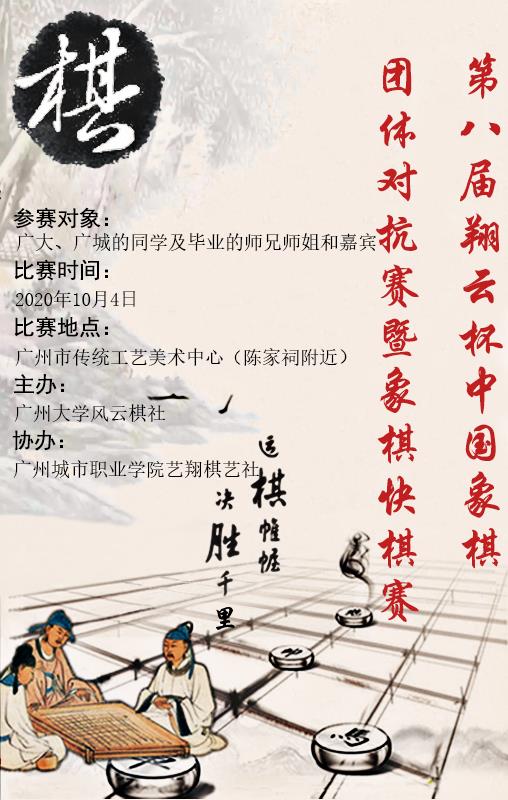 棋
第八届翔云杯中国象棋
团体对抗赛暨象棋快棋赛
参赛对象：
广大、广城的同学及毕业的师兄师姐和嘉宾
比赛时间：
2020年10月4日
比赛地点：
广州市传统工艺美术中心（陈家祠附近）
主办：
广州大学风云棋社
协办：
广州城市职业学院艺翔棋艺社
运棋帷幄
决胜千里